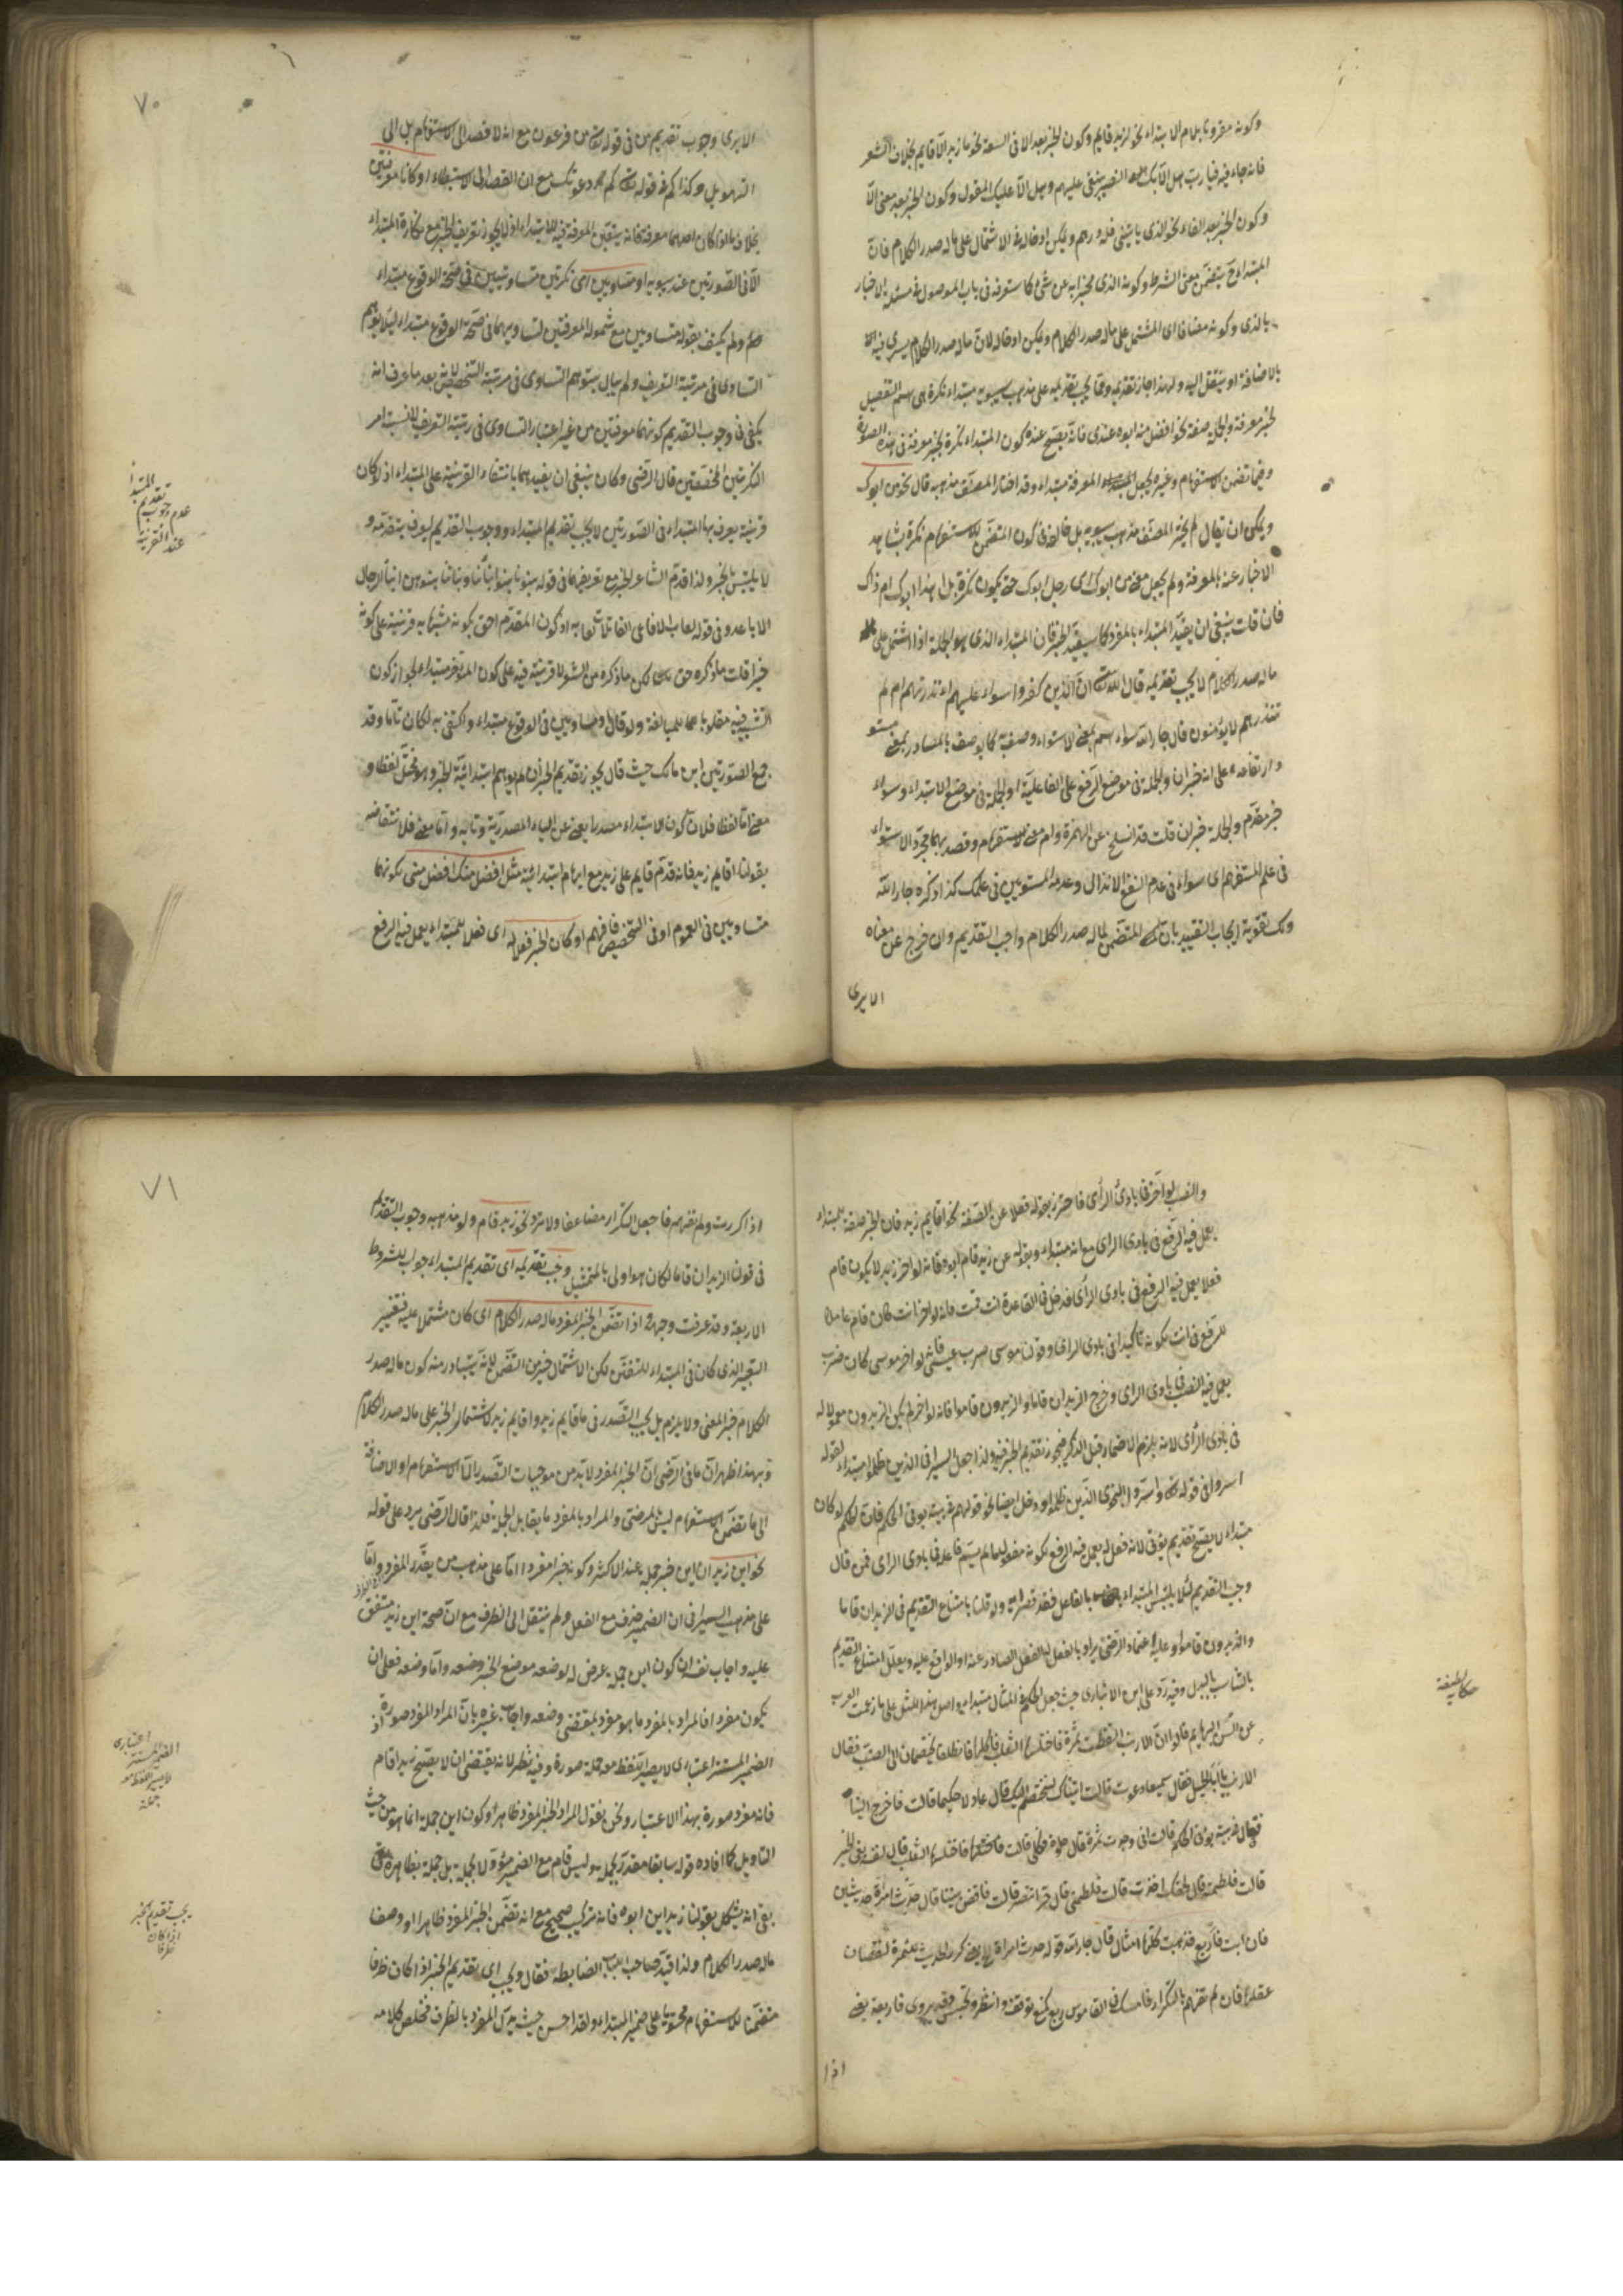 وكونه مقرونا بلام الابتداء نحو لزيد قايم وكون الخبر بعد الا في السعة نحو ما زيد الا قايم بخلاف الشعر
فانه جاء فيه فيا رب هل الا بك النصر يبتغى عليهم وهل الا عليك المعول وكون الخبر بعد معنى الا
وكون الخبر بعد الفاء نحو الذي ياتيني فله درهم ويمكن ادخاله في الاشتمال على ما له صدر الكلام فان
المبتداء ح يتضمن معنى الشرط وكونه الذي مخبرا به عن شيء كما ستعرفه في باب الموصول في مسئلة الاخبار
بالذي وكونه مضافا الى المشتمل على ما له صدر الكلام ويمكن ادخاله لان ما له صدر الكلام يسري فيه
بالاضافة او ينتقل اليه ولهذا جاز تقديمه ومما يجب تقديمه على مذهب سيبويه مبتداء نكرة هي اسم التفضيل
لخبر معرفة والجملة صفة نحو افضل منه ابوه عندي فانه يصح عنده كون المبتداء نكرة لخبر معرفة في هذه الصورة
وفيما تضمن الاستفهام وغيره يجعل المعرفة مبتداء وقد اختار المصنف مذهبه قال نحو من ابوك
ويمكن ان يقال لم يختر المصنف مذهب سيبويه بل خالفه في كون المتضمن للاستفهام نكرة
الاخبار عنه بالمعرفة ولم يجعل معنى من ابوك اي رجل ابوك حتى يكون نكرة بل اهذا ابوك ام ذاك
فان قلت ينبغي ان يقيد المبتداء بالمفرد كما سيقيد الخبر فان المبتداء الذي هو الجملة اذا اشتمل على
ما له صدر الكلام لا يجب تقديمه قال الله تعالى ان الذين كفروا سواء عليهم اءنذرتهم ام لم
تنذرهم لا يؤمنون قال جار الله سواء اسم بمعنى الاستواء وصف به كما يوصف بالمصادر بمعنى مستو
وارتفاعه على انه خبر ان والجملة في موضع الرفع على الفاعلية او الجملة في موضع الابتداء وسواء
خبر مقدم والجملة خبر ان قلت قد انسلخ عن الهمزة وام معنى الاستفهام وقصد بهما مجرد الاستواء
في علم المستفهم اي سواء في عدم النفع الانذار وعدمه المستويين في علمك كذا ذكره جار الله
ولك تقوية ايجاب التقييد بان المتضمن لما له صدر الكلام واجب التقديم وان خرج عن معناه
الا يرى
٧٠
الا يرى وجوب تقديم من في قوله تعالى من فرعون مع انه لا قصد الى الاستفهام بل الى
التهويل وكذا كم في قوله كم دعوتك مع ان القصد الى الاستبطاء او كانا معرفتين
بخلاف ما اذا كان احدهما معرفة فانه يتعين المعرفة فيه للابتداء اذ لا يجوز تعريف الخبر مع نكارة المبتداء
الا في الصورتين عند سيبويه او متساويين اي نكرتين متساويتين في صحة الوقوع مبتداء
ولم يكتف بقوله متساويين مع شموله المعرفتين لتساويهما في صحة الوقوع مبتداء لئلا يتوهم
التساوي في مرتبة التعريف ولم يبال بتوهم التساوي في مرتبة التخصيص لانه بعد ما عرف انه
يكفي في وجوب التقديم كونهما معرفتين من غير اعتبار التساوي في رتبة التعريف
النكرتين المخصصتين قال الرضي وكان ينبغي ان يقيدهما بانتفاء القرينة على المبتداء اذ لو كان
قرينة يعرف بها المبتداء في الصورتين لا يجب تقديم المبتداء ووجوب التقديم ليعرف بتقدمه و
لا يلتبس بالخبر ولذا قدم الشاعر الخبر مع تعريفهما في قوله بنونا بنوا ابنائنا وبناتنا بنوهن ابناء الرجال
الاباعد وفي قوله لعاب الافاعي القاتلات لعابه اذ كون المقدم احق بكونه مشبها به قرينة على كونه
خبرا قلت ما ذكره حق لكن ما ذكره من الشعر لا قرينة فيه على كون المؤخر مبتداء لجواز كون
التشبيه فيه مقلوبا للمبالغة ولو قال ومتساويين في الوقوع مبتداء واكتفى به لكان تاما وقد
جمع الصورتين ابن مالك حيث قال يجوز تقديم الخبر ان لم يوهم ابتدائية الخبر وهو مختل لفظا و
معنى اما لفظا فلان كون الابتداء مصدرا يغني عن الياء المصدرية وتائه واما معنى فلانتقاضه
بقولنا اقايم زيد فانه قدم قايم على زيد مع ايهام ابتدائيته مثل افضل منك افضل مني بكونهما
متساويين في العموم او في التخصيص فافهم او كان الخبر فعلا له اي فعلا للمبتداء يعمل فيه الرفع
عدم وجوب
تقديم المبتدا
عند القرينة
والنصب لو اخر في بادي الراي فاحترز بقوله فعلا عن الصفة نحو اقايم زيد فان الخبر صفة للمبتداء
يعمل فيه الرفع في بادي الراي مع انه مبتداء وبقوله عن زيد قام ابوه فانه لو اخر زيد لا يكون قام
فعلا يعمل فيه الرفع في بادي الراي فدخل في القاعدة انت قمت فانه لو اخر انت كان قام عاملا
للرفع في انت بكونه تاكيدا في بادي الراي وقولنا موسى ضرب عيسى فانه لو اخر موسى كان ضرب
يعمل فيه النصب في بادي الراي وخرج الزيدان قاما والزيدون قاموا فانه لو اخر لم يكن الزيدون معمولا له
في بادي الراي لانه يلزم الاضمار قبل الذكر فيجوز تقديم الخبر فيه ولذا جعل السيرافي الذين ظلموا مبتداء لقوله
اسروا في قوله تعالى واسروا النجوى الذين ظلموا ودخل ايضا نحو قولهم في بيته يؤتى الحكم فان الحكم لو كان
مبتداء لا يصح تقديم يؤتى لانه فعل له يعمل فيه الرفع بكونه مفعول ما لم يسم فاعله في بادي الراي فمن قال
وجب التقديم لئلا يلتبس المبتداء بالفاعل فقد قصر ولذا قلنا بامتناع التقديم في الزيدان قاما
والزيدون قاموا وعليه اعتماد الرضي يراد بالفعل له الفعل الصادر عنه او الواقع عليه ويعلل امتناع التقديم
بالتباس بالبدل وفيه رد على ابن الانباري حيث جعل الحكم في المثال مبتداء واصل هذا المثل على ما زعمت العرب
عن السن البهايم قالوا ان الارنب التقطت ثمرة فاختلسها الثعلب فاكلها فانطلقا يختصمان الى الضب فقال
الارنب يا ابا الحسل فقال سميعا دعوت قالت اتيناك لنختصم اليك قال عادلا حكيما قالت فاخرج الينا
فقال في بيته يؤتى الحكم قالت اني وجدت ثمرة قال حلوة فكلي قالت فاختلسها الثعلب قال لنفسه بغى الخير
قالت فلطمته قال بحقك اخذت قالت فلطمني قال حر انتصر قالت فاقض بيننا قال حدث امراة حديثين
فان ابت فاربع فذهبت كلها امثال قال جار الله قوله حدث امراة اي كرر الحديث مرة لنقصان
عقلها فان لم تفهم بالتكرار فامسك وفي القاموس ربع كمنع توقف وانتظر وتحبس وقد يروى فاربعة يعني
اذا
حكاية لطيفة
٧١
اذا كررت ولم تفهم فاجعل التكرار مضاعفا ولا تزد نحو زيد قام ولو مذهبه وجوب التقديم
في قولنا الزيدان قاما لكان هو اولى بالتمثيل وجب تقديمه اي تقديم المبتداء جواب للشروط
الاربعة وقد عرفت وجهه اذا تضمن الخبر المفرد ما له صدر الكلام اي كان مشتملا عليه فتغيير
التعبير الذي كان في المبتداء للتفنن لكن الاشتمال خير من التضمن لانه يتبادر منه كون ما له صدر
الكلام جزء المعنى ولا يلزم بل يجب التصدر في ما قايم زيد واقايم زيد لاشتمال الخبر على ما له صدر الكلام
وبهذا ظهر ان ما في الرضي ان الخبر المفرد لا بد من موجبات التصدير الا الاستفهام او الاضافة
الى ما تضمن الاستفهام ليس بمرضي والمراد بالمفرد ما يقابل الجملة فلذا قال الرضي يرد على قوله
نحو اين زيد ان اين خبر جملة عند الاكثر وكونه خبرا مفردا اما على مذهب من يقدر المفرد واما
على مذهب السيرافي ان الضمير حذف مع الفعل ولم ينتقل الى الظرف مع ان صحة اين زيد متفق
عليه واجاب نفسه ان كون اين جملة عرض له لوضعه موضع الخبر وضعه واما وضعه فعلى ان
يكون مفردا فالمراد بالمفرد ما هو مفرد بمقتضى وضعه واجاب غيره بان المراد المفرد صورة اذ
الضمير المستتر اعتباري لا يصير اللفظ معه جملة صورة وفيه نظر لانه يقتضي ان لا يصح زيد اقام
فانه مفرد صورة بهذا الاعتبار ونحن نقول المراد الخبر المفرد ظاهرا وكون اين جملة انما هو من حيث
التاويل كما افاده قوله سابقا مقدر بجملة وليس قام مع الضمير مؤولا بجملة بل جملة بظاهره
بقي انه يشكل بقولنا زيد اين ابوه فانه تركيب صحيح مع انه تضمن الخبر المفرد ظاهرا او وصفا
ما له صدر الكلام ولذا قيد صاحب اللباب الضابطة فقال ويجب اي تقديم الخبر اذا كان ظرفا
متضمنا للاستفهام محتويا على ضمير المبتداء ولقد احسن حيث بدل المفرد بالظرف فخلص كلامه
اعتباري
الضمير المستتر
لا يصير اللفظ معه
جملة
يجب تقديم الخبر
اذا كان
ظرفا